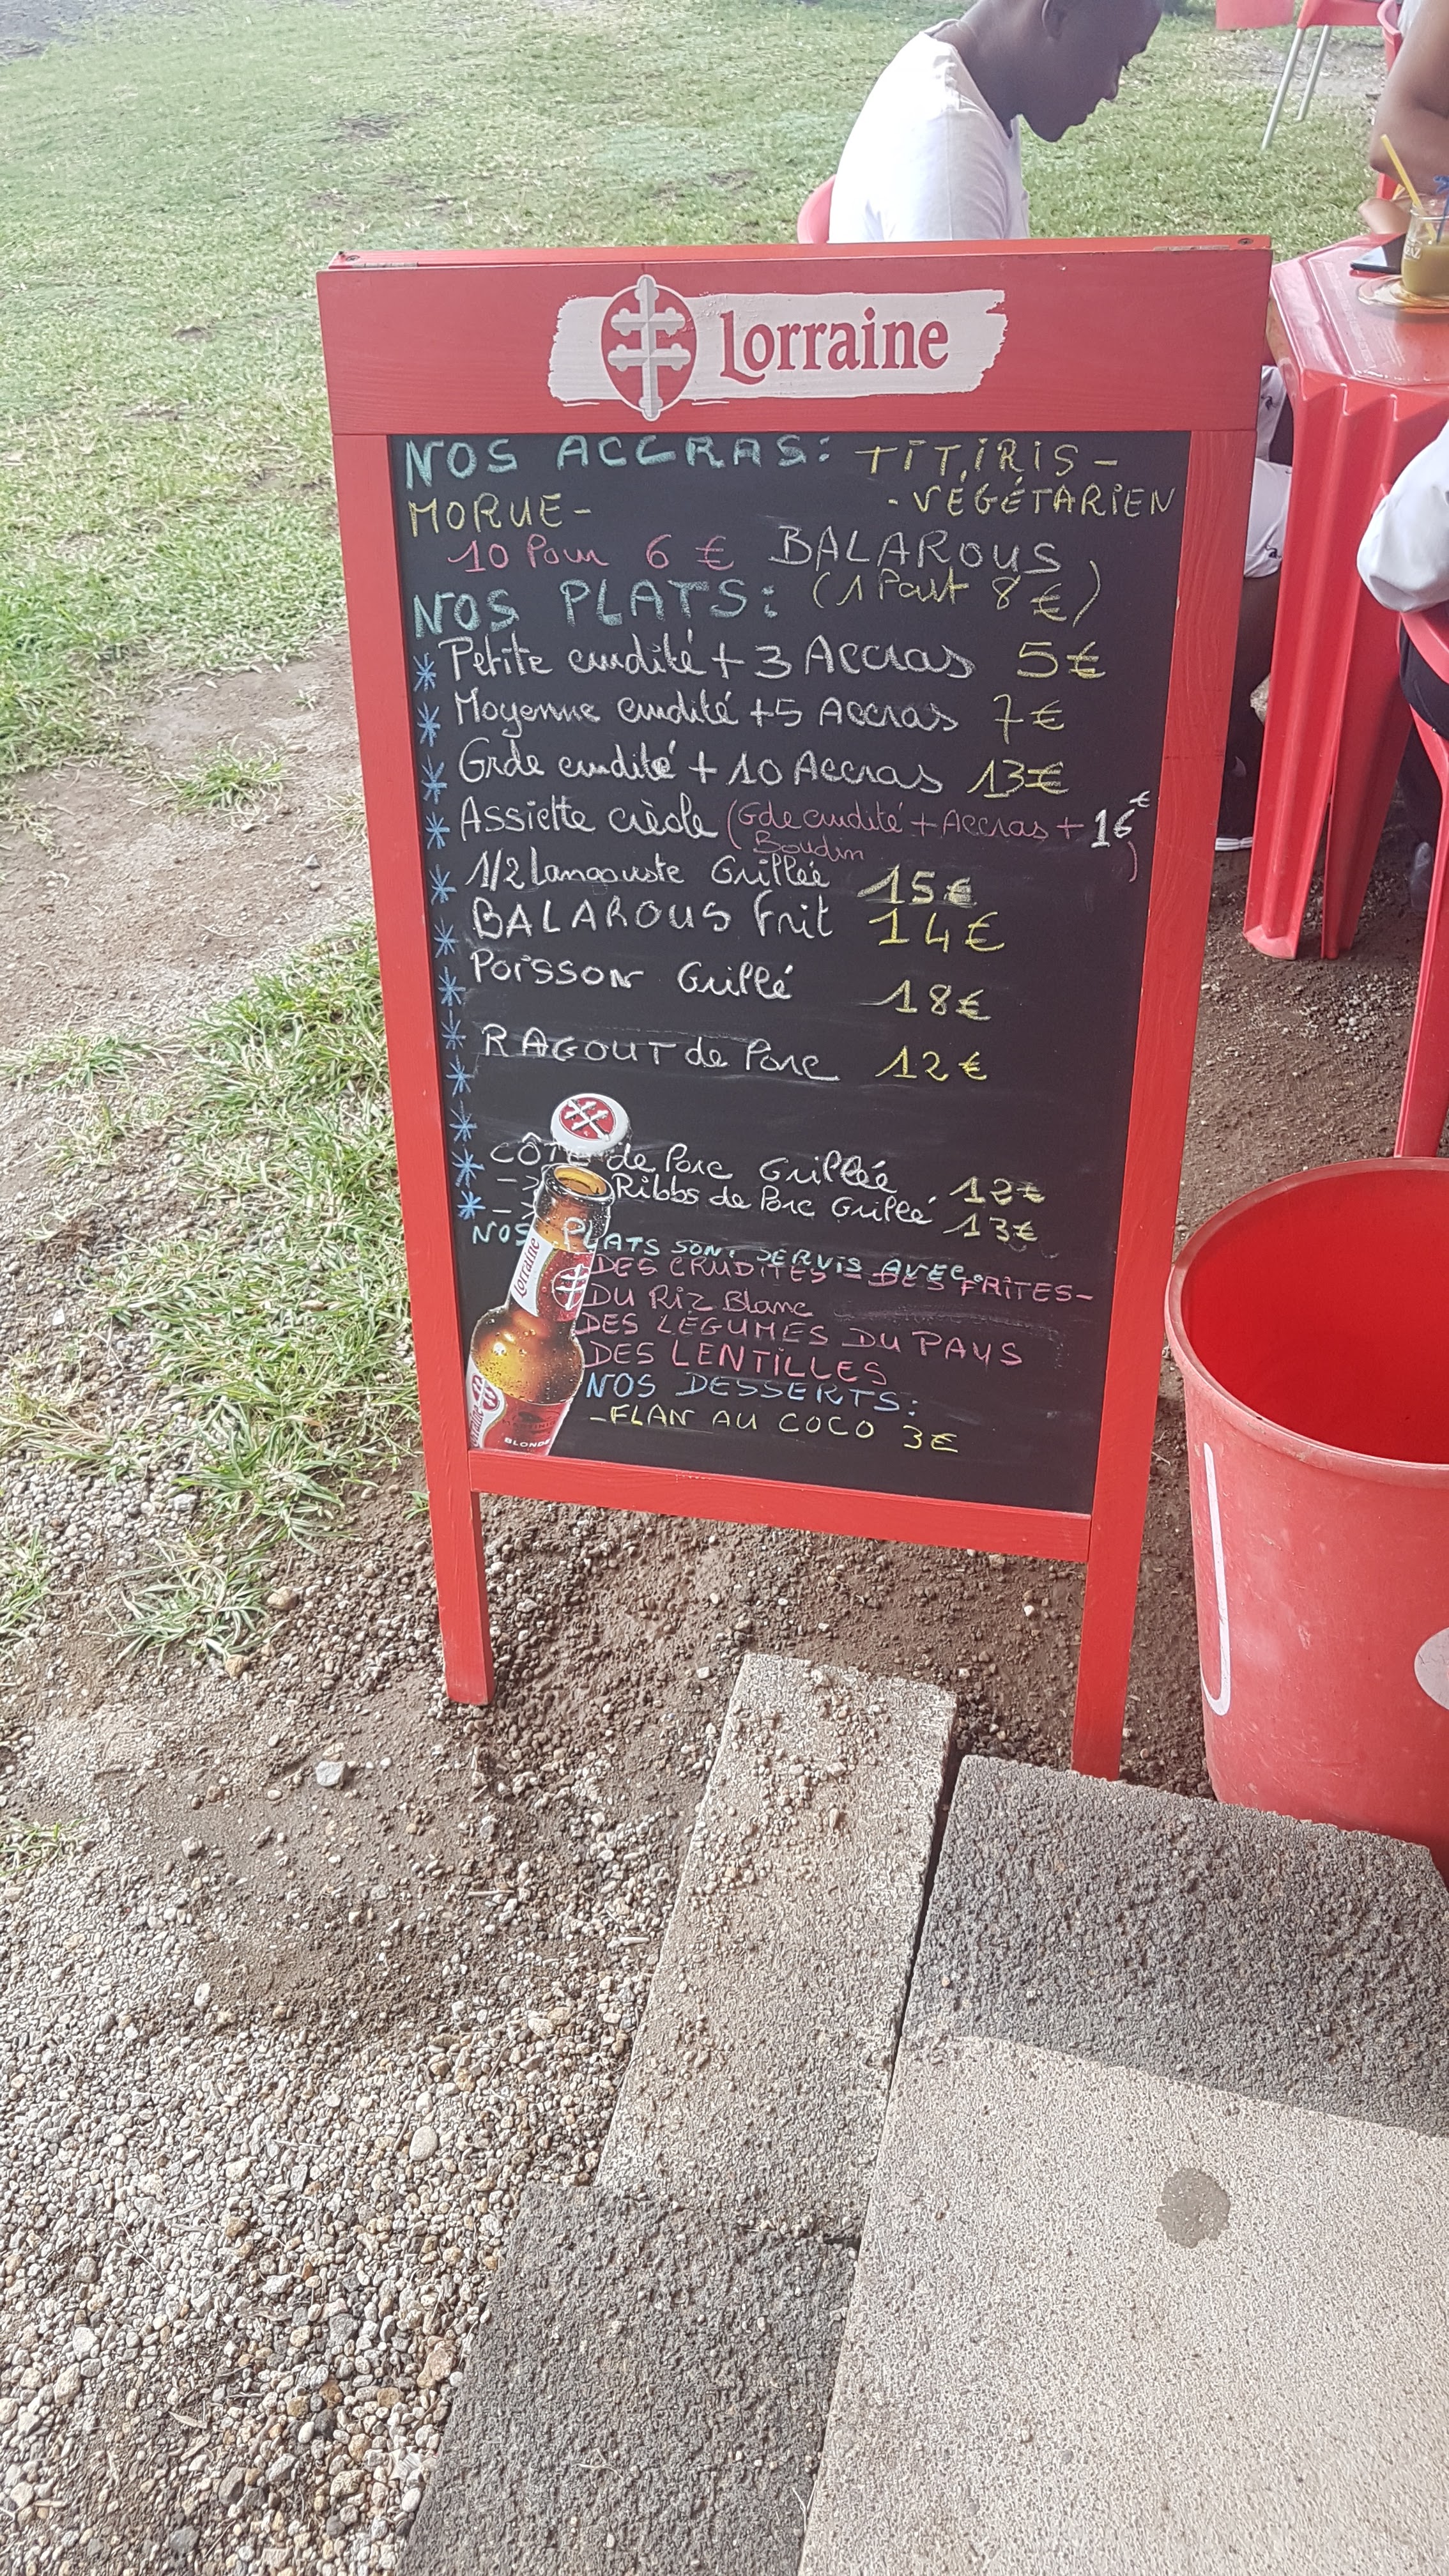 Lorraine
NOS ACCRAS: TITIRIS -
MORUE- - VÉGÉTARIEN
10 Pour 6 € BALAROUS
NOS PLATS: (1 Part 8 €)
* Petite crudité + 3 Accras 5€
* Moyenne crudité +5 Accras 7€
* Grde crudité + 10 Accras 13€
* Assiette crèole (Gde crudité + Accras + 16€
Boudin )
* 1/2 Langouste Grillée 15€
* BALAROUS Frit 14€
* POISSON Grillé 18€
* RAGOUT de Porc 12€
* CÔTE de Porc Grillée 12€
* -> Ribbs de Porc Grillé 13€
NOS PLATS SONT SERVIS AVEC:
DES CRUDITÉS - DES FRITES-
DU RIZ Blanc
DES LÉGUMES DU PAYS
DES LENTILLES
NOS DESSERTS:
-FLAN AU COCO 3€
Lorraine
BLONDE